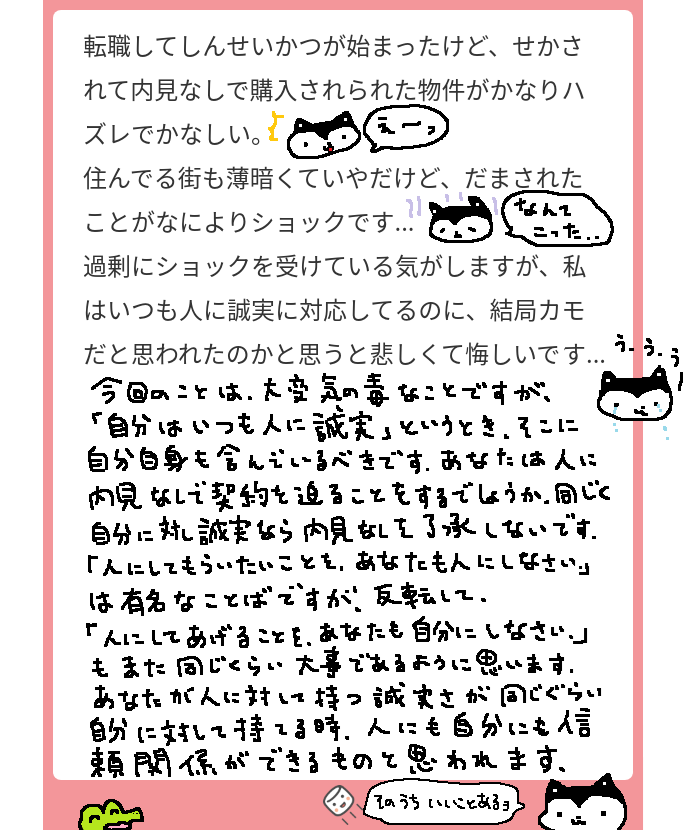 転職してしんせいかつが始まったけど、せかさ
れて内見なしで購入されられた物件がかなりハ
ズレでかなしい。
えーっ
住んでる街も薄暗くていやだけど、だまされた
ことがなによりショックです...
なんて
こった..
過剰にショックを受けている気がしますが、私
はいつも人に誠実に対応してるのに、結局カモ
だと思われたのかと思うと悲しくて悔しいです...
うーうーう
今回のことは、大変気の毒なことですが、
「自分はいつも人に誠実」というとき、そこに
自分自身も含んでいるべきです。あなたは人に
内見なしで契約を迫ることをするでしょうか。同じく
自分に対し誠実なら内見なしを了承しないです。
「人にしてもらいたいことを、あなたも人にしなさい」
は有名なことばですが、反転して、
「人にしてあげることを、あなたも自分にしなさい。」
もまた同じくらい大事であるように思います。
あなたが人に対して持つ誠実さが同じぐらい
自分に対して持てる時、人にも自分にも信
頼関係ができるものと思われます、
そのうちいいことあるヨ